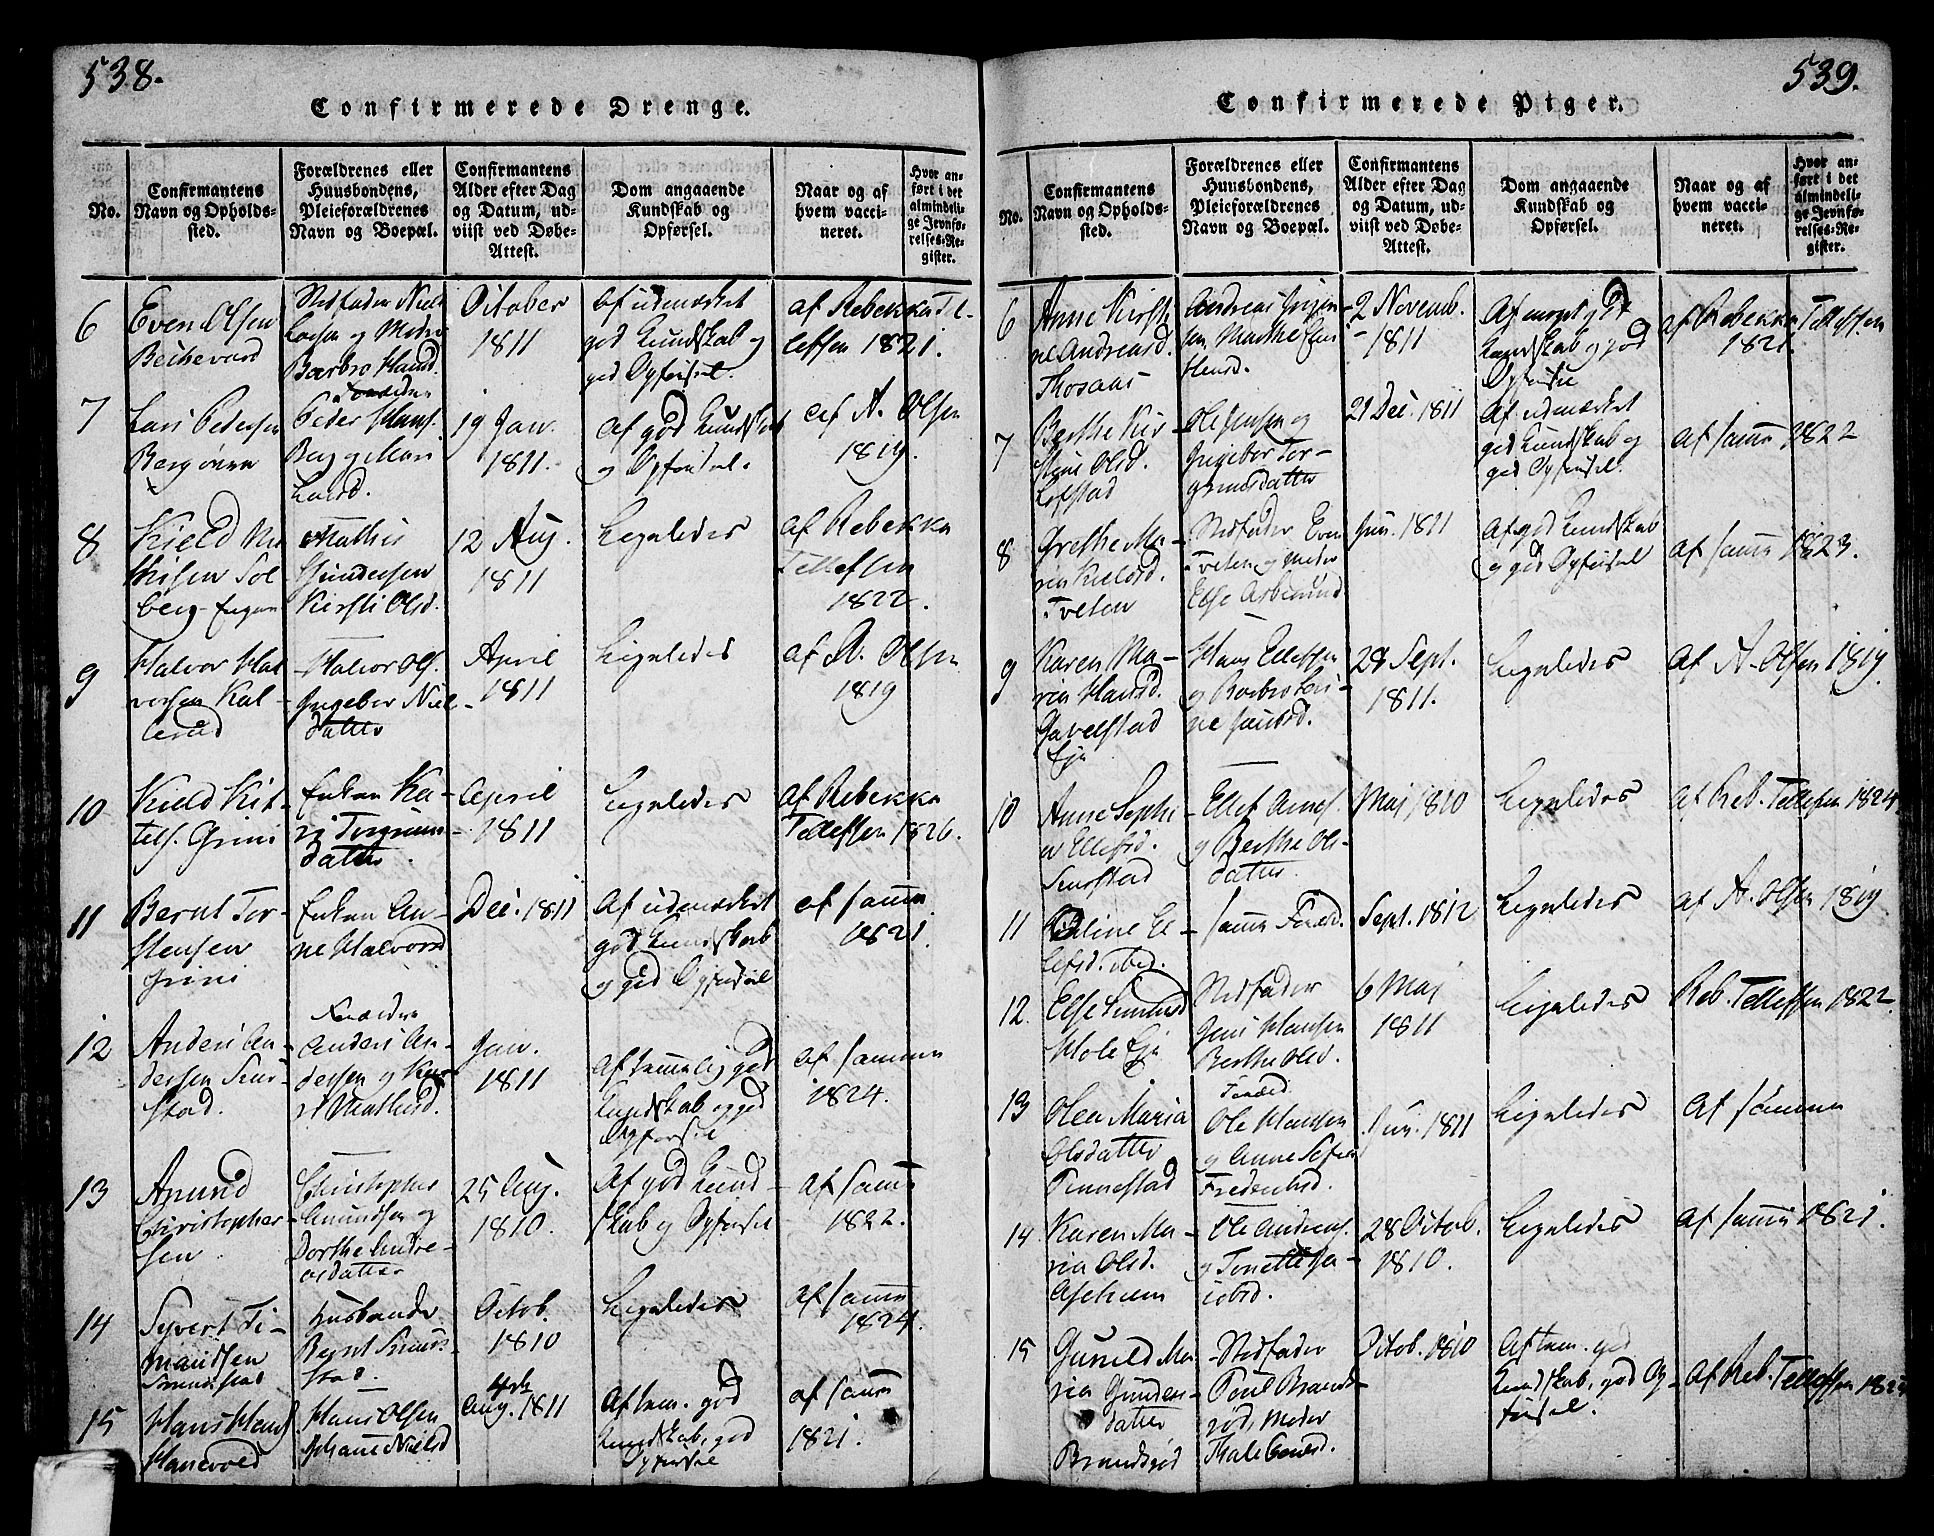 538.
Confirmerede Drenge.
No.
Confirmantens
Navn og Opholds-
sted.
Forældrenes eller
Huusbondens,
Pleieforældrenes
Navn og Boepæl.
Confirmantens
Alder efter Dag
og Datum, ud-
viist ved Døbe-
Attest.
Dom angaaende
Kundskab og
Opførsel.
Naar og af
hvem vacci-
neret.
Hvor an-
ført i det
almindeli-
ge Jevnfø-
relses-Re-
gister.
6
Even Olsen
Stedfader Niels
og Moder
Barbro
October
1811
Af udmærket
god Kundskab og
god Opførsel.
af Rebekka Tel-
lefsen 1821.
7
Lars Pedersen
Forældre
Peder Hans.
Berg og Mari
Larsd.
19 Jan.
1811.
Af god Kundskab
og Opførsel.
af A. Olsen
1819.
8
Kield Ma-
thisen Sol-
berg-
Mathis
Gundersen
Kirsti Olsd.
12 Aug.
1811
Ligeledes
af Rebekka
Tellefsen
1822.
9
Halvor Hal-
vorsen Kal-
lerud
Halvor Ols.
Ingebor Niels-
datter
April
1811
Ligeledes
af A. Olsen
1819
10
Kield Kit-
tels. Grini
Enken Ka-
ri Torgrims-
datter.
April
1811
Ligeledes
af Rebekka
Tellefsen 1826.
11
Bernt Tor-
stensen
Grini
Enken An-
ne Halvorsd
Dec. 1811
Af udmærket
god Kundskab
og god Opførsel
af samme
1821.
12
Anders An-
dersen
stad.
Forældre
Anders An-
dersen og Ka-
ri Mathisd.
Jan.
1811
Af temmelig god
Kundskab og god
Opførsel
af samme
1824.
13
Amund
Christopher-
sen
Christopher
Amundsen og
Dorthe Andre-
asdatter
25 Aug.
1810.
Af god Kund-
skab og Opførsel
af samme
1822.
14
Syvert Ti-
mandsen
Husbonde
Bernt
stad.
Octob.
1810
Ligeledes
af samme
1824.
15
Hans Hans.
Hanevold
Hans Olsen
Johanne Nielsd
4de
Aug. 1811
Af tem. god
Kundskab, god
Opførsel
af samme
1821.
539.
Confirmerede Piger.
No.
Confirmantens
Navn og Opholds-
sted.
Forældrenes eller
Huusbondens,
Pleieforældrenes
Navn og Boepæl.
Confirmantens
Alder efter Dag
og Datum, ud-
viist ved Døbe-
Attest.
Dom angaaende
Kundskab og
Opførsel.
Naar og af
hvem vacci-
neret.
Hvor an-
ført i det
almindeli-
ge Jevnfø-
relses-Re-
gister.
6
Anne Kirsti-
ne Andreasd.
Thosaas
Andreas
Marthe
2 Novemb.
1811
Af meget god
Kundskab og god
Opførsel
af Rebekka Tellefsen
1821.
7
Berthe Kir-
stine Olsd.
Lofstad
Ole Jensen og
Ingebor Tor-
grimsdatter
21 Dec. 1811
Af udmærket
god Kundskab og
god Opførsel.
af samme 1822
8
Grethe Ma-
rie Kieldsd.
Tveten
Stedfader Even
Tveten og Moder
Else
Jun. 1811
Af god Kundskab
og god Opførsel
af samme 1823.
9
Karen Ma-
ria Hansd.
Gavelstad
Eje
Hans Ellefsen
og Barbro Seri-
ne
28 Sept.
1811.
Ligeledes
af A. Olsen 1819.
10
Anne Sophi-
e Ellefsd.
Ellef Arnes.
og Berthe Ols-
datter.
Maj 1810
Ligeledes
af Reb. Tellefsen 1824.
11
Oline El-
lefsd. ibid.
samme Foræld.
Sept. 1812
Ligeledes
af A. Olsen 1819.
12.
Else
Hole Eje
Stedfader
Jens Hansen
Berthe Olsd.
6 Maj
1811
Ligeledes
Reb. Tellefsen 1822.
13
Olea Maria
Olsdatter
Foræld.
Ole Hansen
og Anne
Jun. 1811
Ligeledes
af samme
14
Karen Ma-
ria Olsd.
Askum
Ole Andreas.
og Tonette Ja-
cobsd.
28 Octob.
1810.
Ligeledes
af samme 1821.
15
Gunild Ma-
ria Gunders-
datter
Brandsrød
Stedfader
Poul Brands-
rød, Moder
Octob. 1810
Af tem. god
Kundskab, god Op-
førsel.
af Reb. Tellefsen